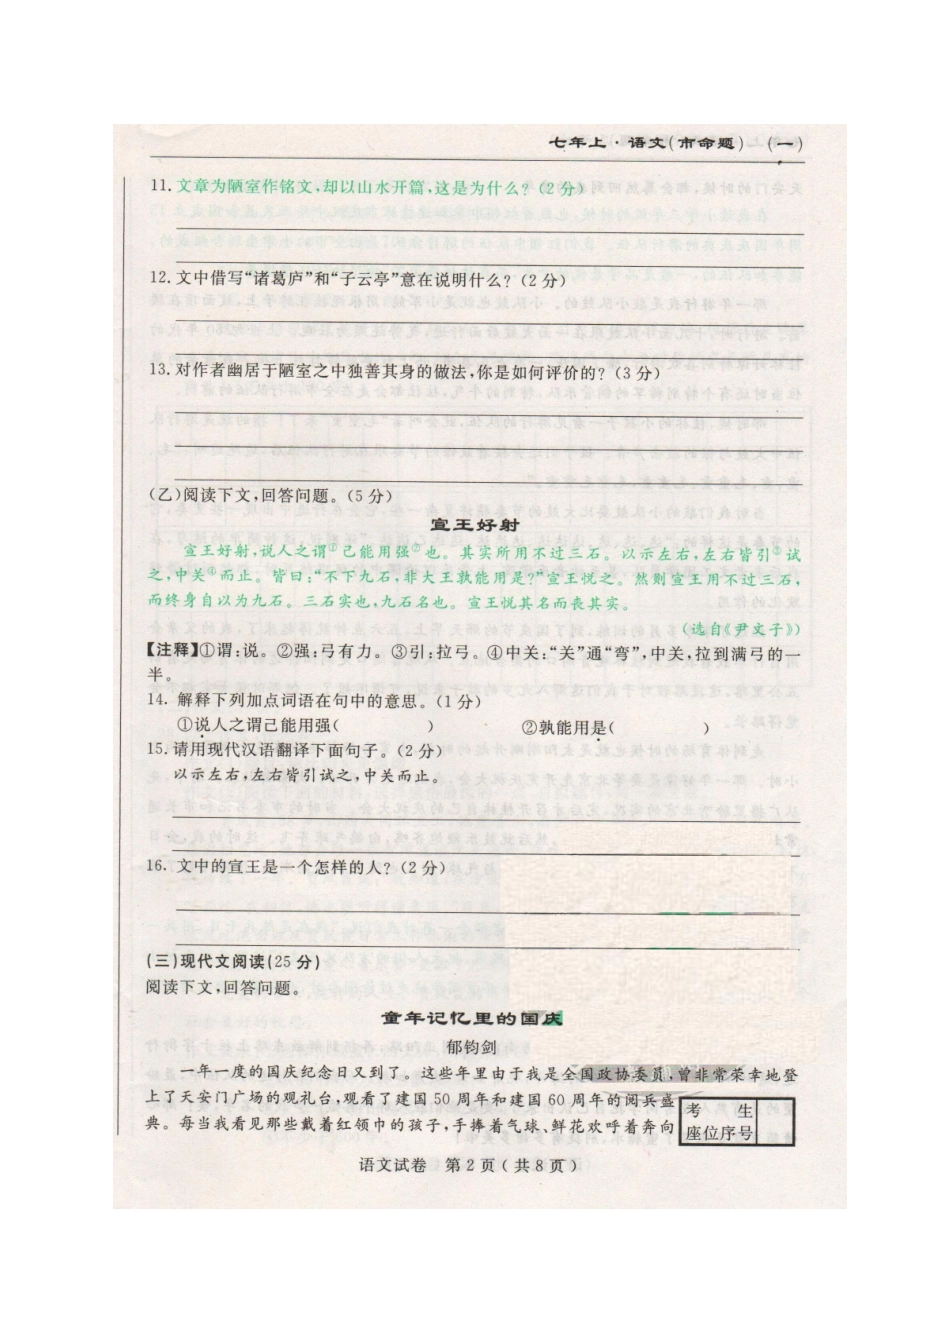 七年上·语文(市命题) (一)
11.文章为陋室作铭文,却以山水开篇,这是为什么?(2分)
12.文中借写“诸葛庐”和“子云亭”意在说明什么?(2分)
13.对作者幽居于陋室之中独善其身的做法,你是如何评价的?(3分)
(乙)阅读下文,回答问题。(5分)
宣王好射
宣王好射,说人之谓①己能用强②也。其实所用不过三石。以示左右,左右皆引③试
之,中关④而止。皆曰:“不下九石,非大王孰能用是?”宣王悦之。然则宣王用不过三石,
而终身自以为九石。三石实也,九石名也。宣王悦其名而丧其实。
(选自《尹文子》)
【注释】①谓:说。②强:弓有力。③引:拉弓。④中关:“关”通“弯”,中关,拉到满弓的一
半。
14. 解释下列加点词语在句中的意思。(1分)
①说人之谓己能用强( ) ②孰能用是( )
15.请用现代汉语翻译下面句子。(2分)
以示左右,左右皆引试之,中关而止。
16.文中的宣王是一个怎样的人?(2分)
(三)现代文阅读(25分)
阅读下文,回答问题。
童年记忆里的国庆
郁钧剑
一年一度的国庆纪念日又到了。这些年里由于我是全国政协委员,曾非常荣幸地登
上了天安门广场的观礼台,观看了建国50周年和建国60周年的阅兵盛
典。每当我看见那些戴着红领巾的孩子,手捧着气球、鲜花欢呼着奔向
考 生
座位序号
语文试卷 第2页(共8页)